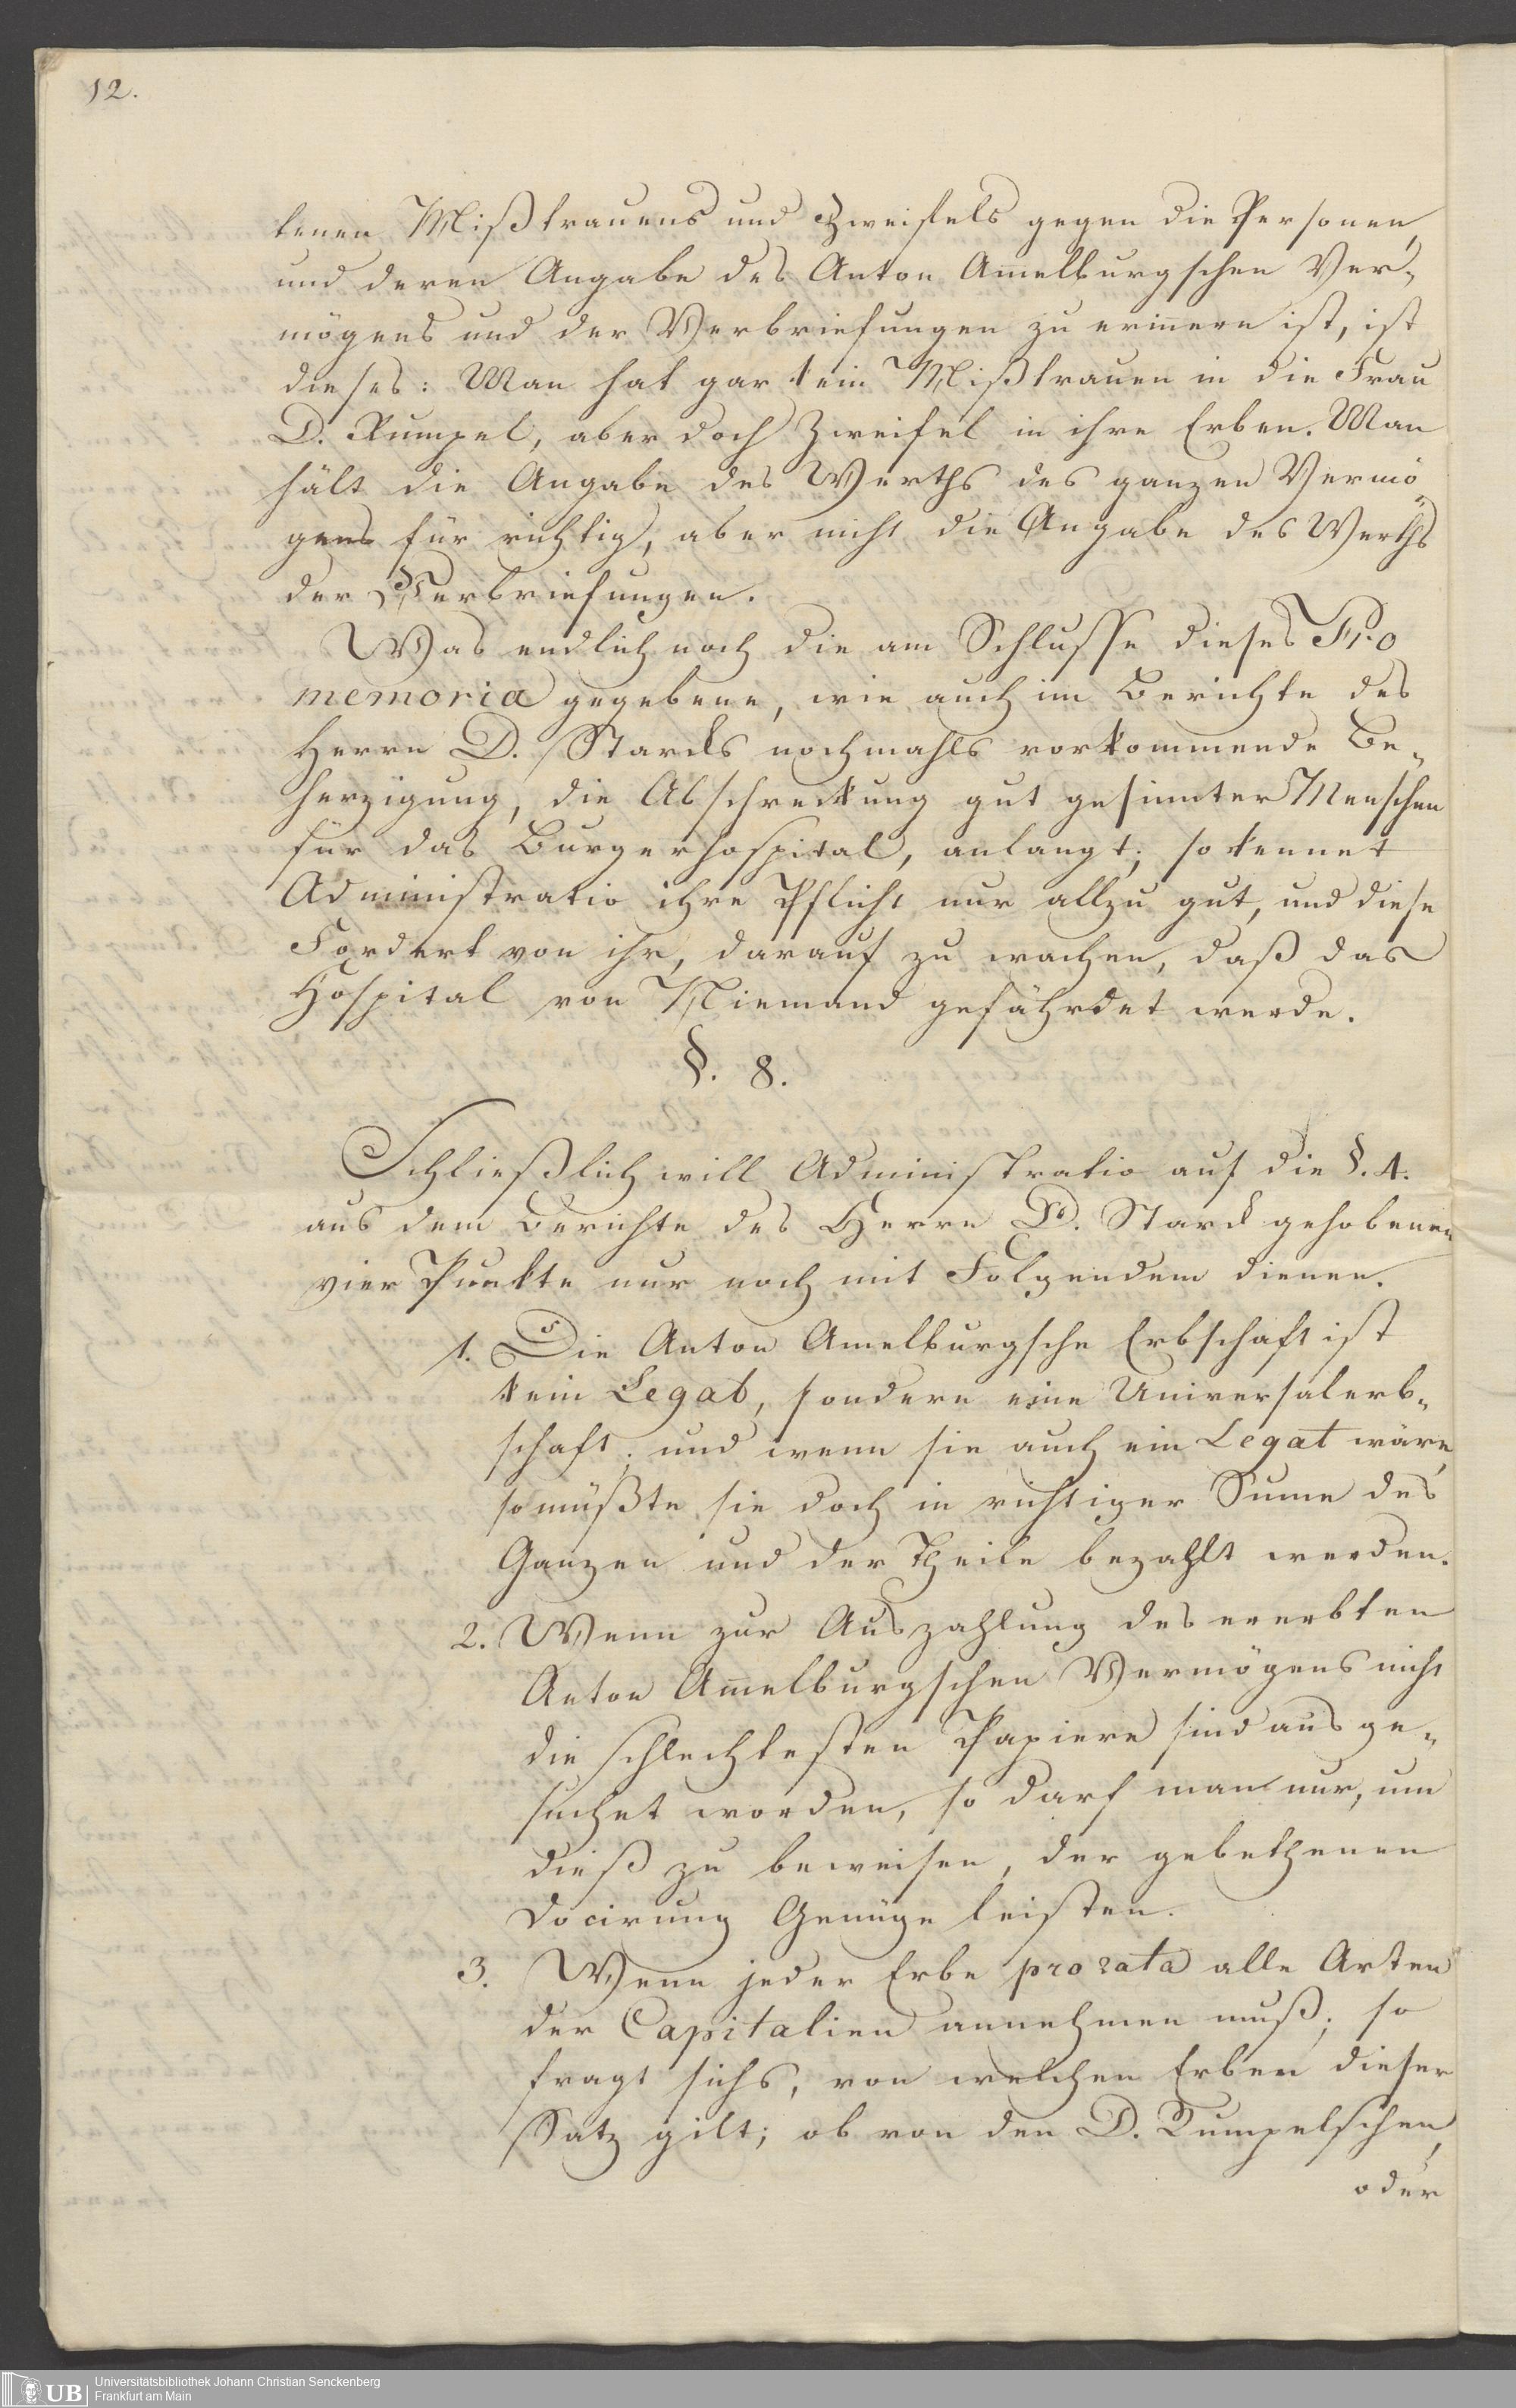 12.
tenen Mißtrauens und Zweifels gegen die Personen,
und deren Angabe des Anton Amelburgschen Ver„
mögens und der Verbriefungen zu erinnern ist, ist
dieses: Man hat gar kein Mißtrauen in die Frau
D. Rumpel, aber doch Zweifel in ihre Erben. Man
hält die Angabe des Werths des ganzen Vermö„
gens für richtig, aber nicht die Angabe des Werths
der Verbriefungen.
Was endlich noch die am Schlusse dieses Pro
memoria gegebene, wie auch im Berichte des
Herrn D. Starcks nochmahls vorkommende Be„
herzigung, die Abschreckung gut gesinnter Menschen
für das Burgerhospital, anlangt; so kennet
Administratio ihre Pflicht nur allzu gut, und diese
Fordert von ihr, darauf zu wachen, daß das
Hospital von Niemand gefährdet werde.
§. 8.
Schließlich will Administratio auf die §. 4.
aus dem Berichte des Herrn D. Starck gehobenen
vier Punkte nur noch mit Folgendem dienen.
1. Die Anton Amelburgsche Erbschaft ist
kein Legat, sondern eine Universalerb„
schaft; und wenn sie auch ein Legat wäre,
so müßte sie doch in richtiger Sum̅e des
Ganzen und der Theile bezahlt werden.
2. Wenn zur Auszahlung des ererbten
Anton Amelburgschen Vermögens nicht
die schlechtesten Papiere sind ausge„
suchet worden, so darf man nur, um
dieß zu beweisen, der gebethenen
Docirung Genüge leisten.
3. Wenn jeder Erbe pro rata alle Arten
der Capitalien annehmen muß; so
fragt sichs, von welchen Erben dieser
Satz gilt; ob von den D. Rumpelschen,
oder
UB
Universitätsbibliothek Johann Christian Senckenberg
Frankfurt am Main